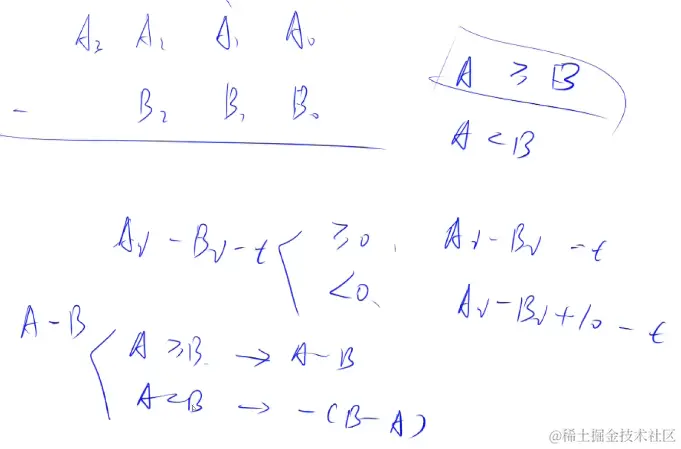 A₃ A₂ A₁ A₀
- B₂ B₁ B₀
A ≥ B
A < B
Aᵢ - Bᵢ - t
≥0, Aᵢ - Bᵢ - t
<0, Aᵢ - Bᵢ + 10 - t
A - B
A ≥ B → A - B
A < B → -(B - A)
@稀土掘金技术社区